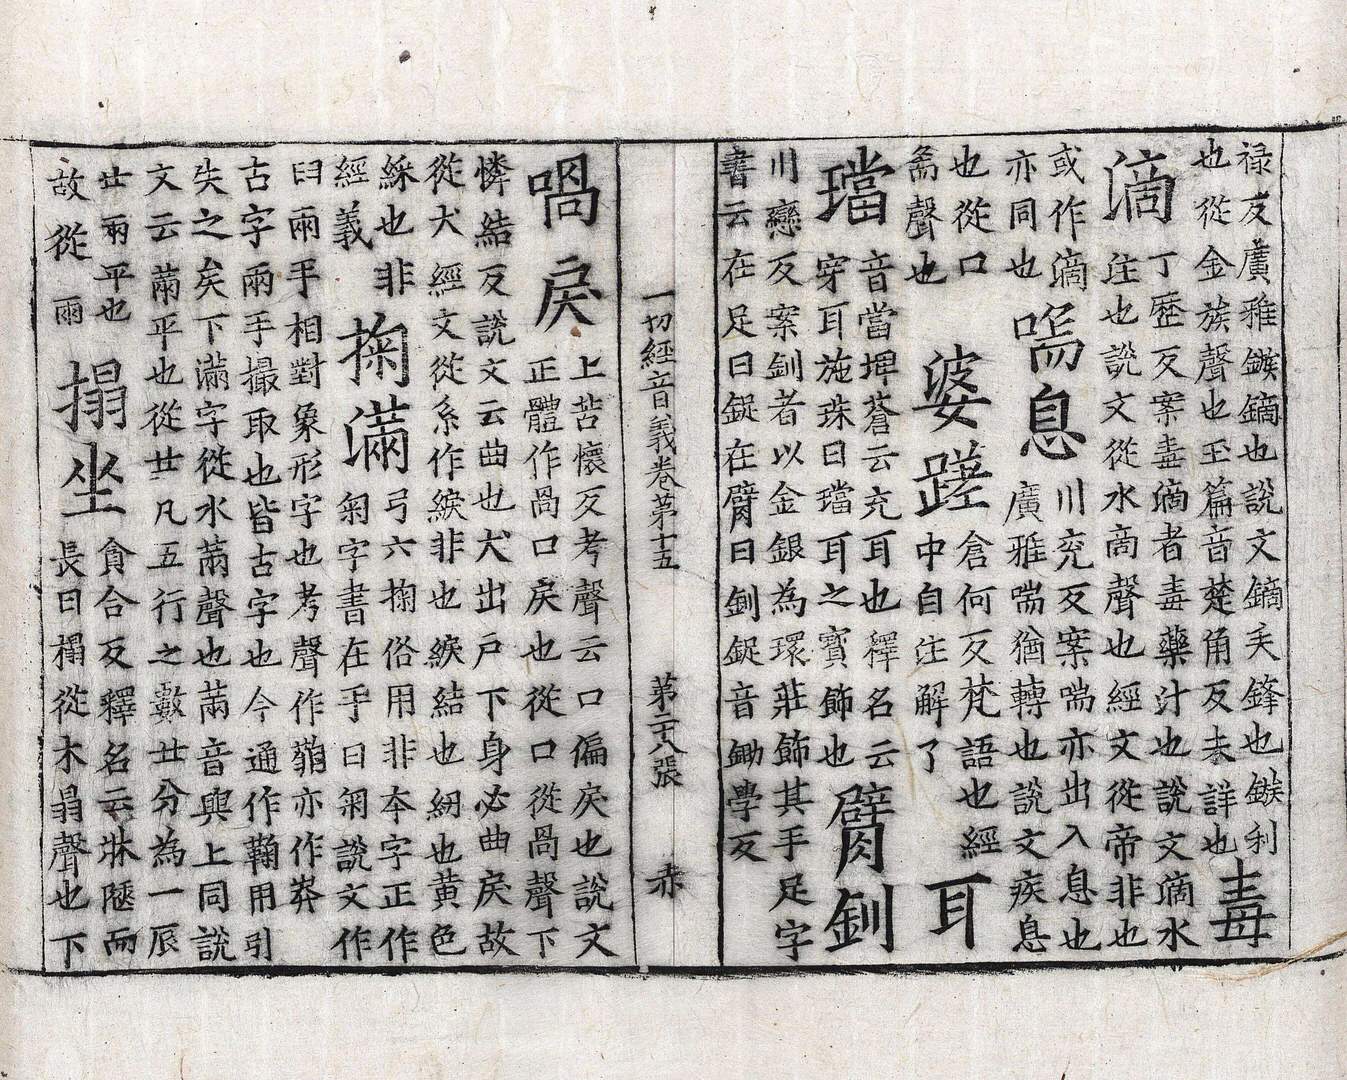 禄反廣雅鏃鏑也說文鏑矢鋒也鏃利
也從金族聲也玉篇音楚角反未詳也
毒
滴
丁歷反案毒滴者毒藥汁也說文滴水
注也說文從水啇聲也經文從帝非也
或作滴
亦同也
喘息
川兖反案喘亦出入息也
廣雅喘猶轉也說文疾息
也從口
耑聲也
婆蹉
倉何反梵語也經
中自注解了
耳
璫
音當埤蒼云充耳也釋名云
穿耳施珠曰璫耳之寶飾也
臂釧
川戀反案釧者以金銀為環莊飾其手足字
書云在足曰鋜在臂曰釧鋜音鋤學反
一切經音義卷第十五 第二十八張 赤
喎戾
上苦懷反考聲云口偏戾也說文
正體作咼口戾也從口從咼聲下
憐結反說文云曲也犬出戶下身必曲戾故
從犬經文從糸作綟非也綟結也紉也黃色
綵也非
經義
掬滿
弓六掬俗用非夲字正作
匊字書在手曰匊說文作
𦥑兩手相對象形字也考聲作𦥑亦作𢍏
古字兩手撮取也皆古字也今通作鞠用引
失之矣下滿字從水㒼聲也㒼音與上同說
文云㒼平也從廿凡五行之數廿分為一辰
廿兩平也
故從㒳
搨坐
貪合反釋名云牀陿而
長曰榻從木𦐇聲也下